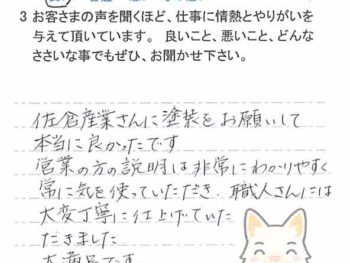 3 お客さまの声を聞くほど、仕事に情熱とやりがいを
与えて頂いています。 良いこと、悪いこと、どんな
ささいな事でもぜひ、お聞かせ下さい。
佐倉産業さんに塗装をお願いして
本当に良かったです
営業の方の説明は非常にわかりやすく
常に気を使っていただき、職人さんには
大変丁寧に仕上げていた
だきました
大満足です